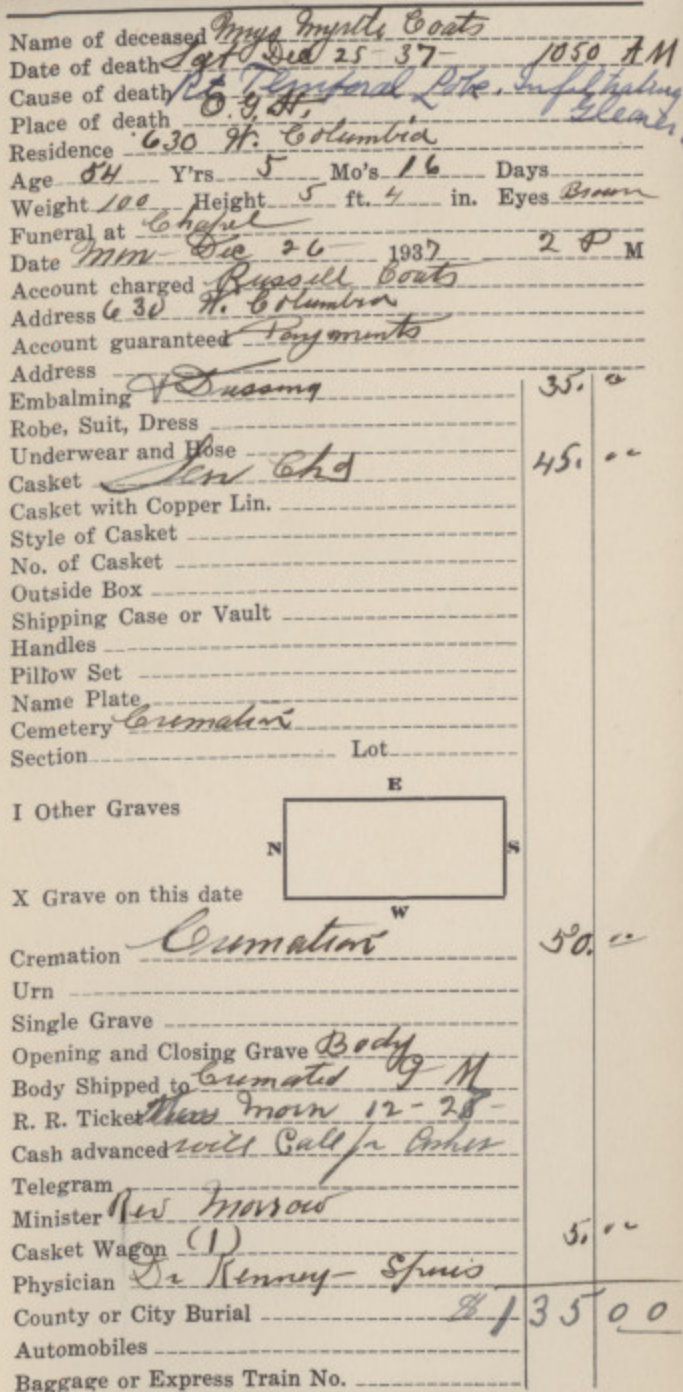 Name of deceased Mrs Myrtle Coats
Date of death Sat Dec 25 - 37 - 1050 AM
Cause of death Rt Temporal Lobe. Infiltrating
Place of death O.G.H.
Residence 630 W. Columbia
Age 54 Y'rs 5 Mo's 16 Days
Weight 100 Height 5 ft. 4 in. Eyes Brown
Funeral at Chapel
Date Mon Dec 26 1937 2 P M
Account charged Russell Coats
Address 630 W. Columbia
Account guaranteed Payments
Address
Embalming & Dressing 35. 00
Robe, Suit, Dress
Underwear and Hose
Casket 45. 00
Casket with Copper Lin.
Style of Casket
No. of Casket
Outside Box
Shipping Case or Vault
Handles
Pillow Set
Name Plate
Cemetery Cremation
Section Lot
E
I Other Graves
N S
X Grave on this date
W
Cremation Cremation 50. 00
Urn
Single Grave
Opening and Closing Grave Body
Body Shipped to Cremated 9 M
R. R. Ticket Morn 12-28-
Cash advanced will Call for Ashes
Telegram
Minister Rev Morrow
Casket Wagon (1) 5. 00
Physician Dr Kenney -
County or City Burial $135 00
Automobiles
Baggage or Express Train No.